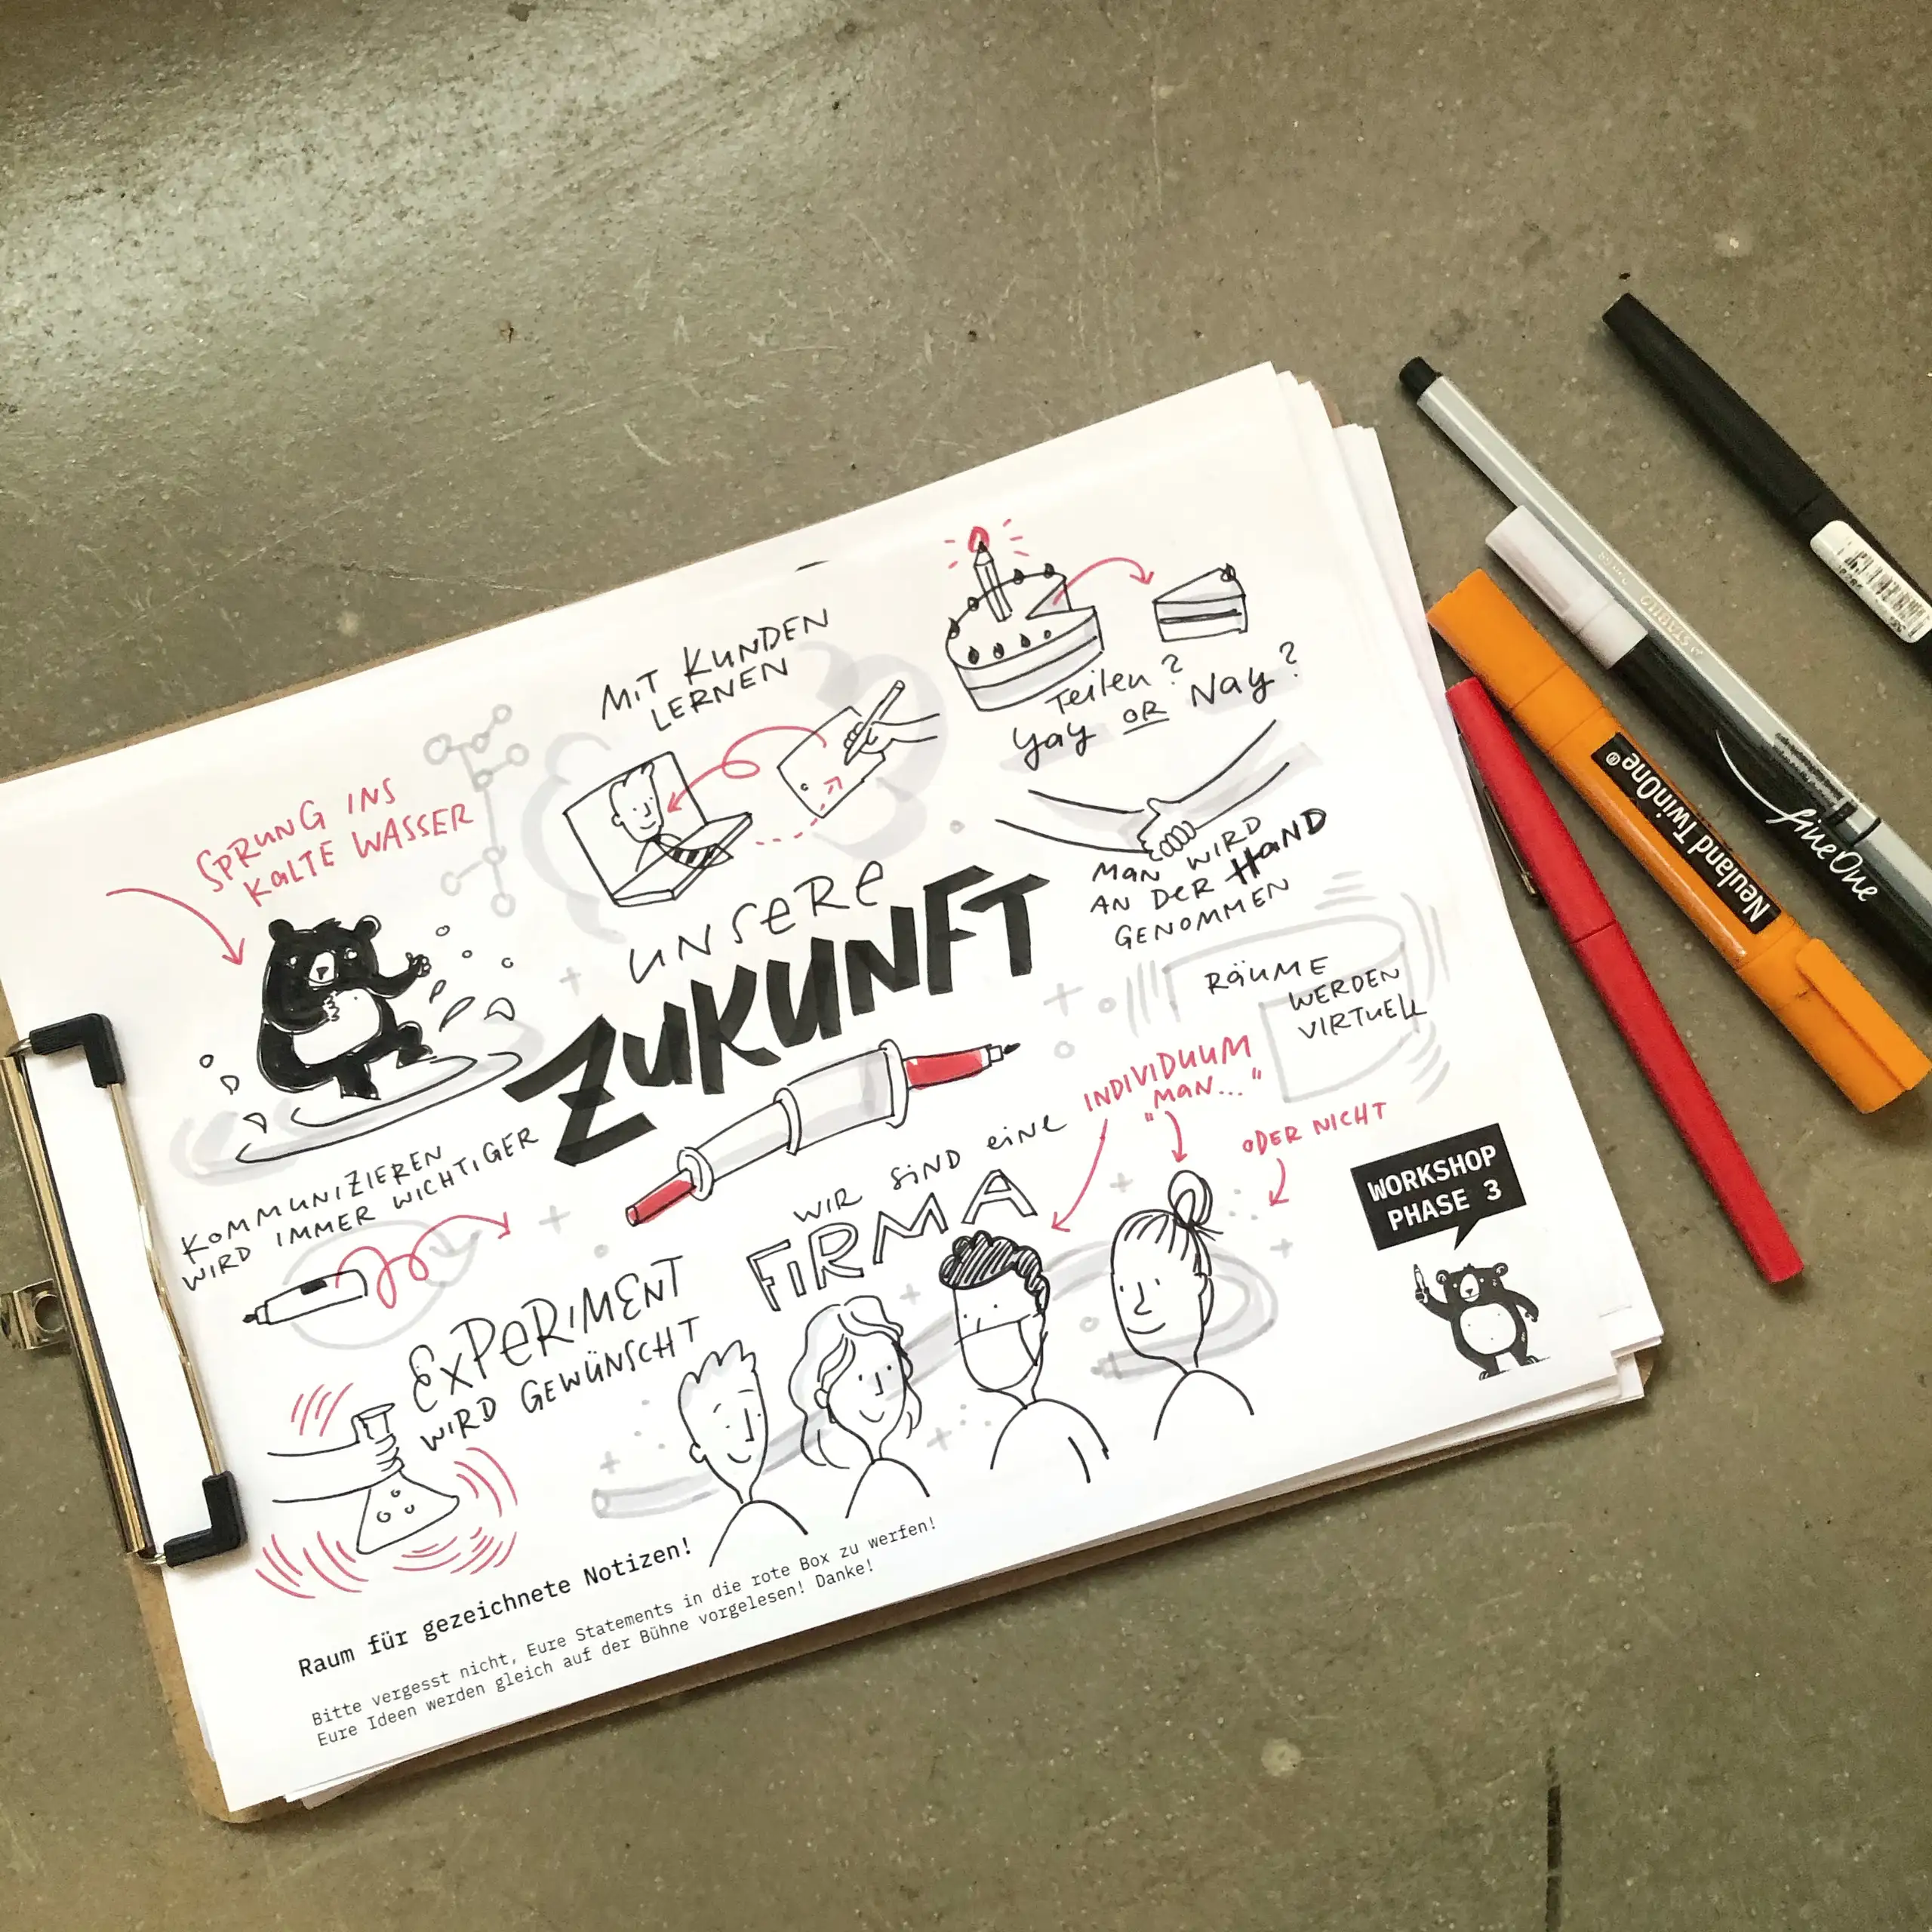 MIT KUNDEN
LERNEN
Teilen?
Yay OR Nay?
SPRUNG INS
KALTE WASSER
MAN WIRD
AN DER HAND
GENOMMEN
UNSERE
ZUKUNFT
RÄUME
WERDEN
VIRTUELL
INDIVIDUUM
"MAN..."
ODER NICHT
KOMMUNIZIEREN
WIRD IMMER WICHTIGER
WIR SIND EINE
FIRMA
EXPERIMENT
WIRD GEWÜNSCHT
WORKSHOP
PHASE 3
Raum für gezeichnete Notizen!
Bitte vergesst nicht, Eure Statements in die rote Box zu werfen!
Eure Ideen werden gleich auf der Bühne vorgelesen! Danke!
Neuland TwinOne®
fineOne
STABILO